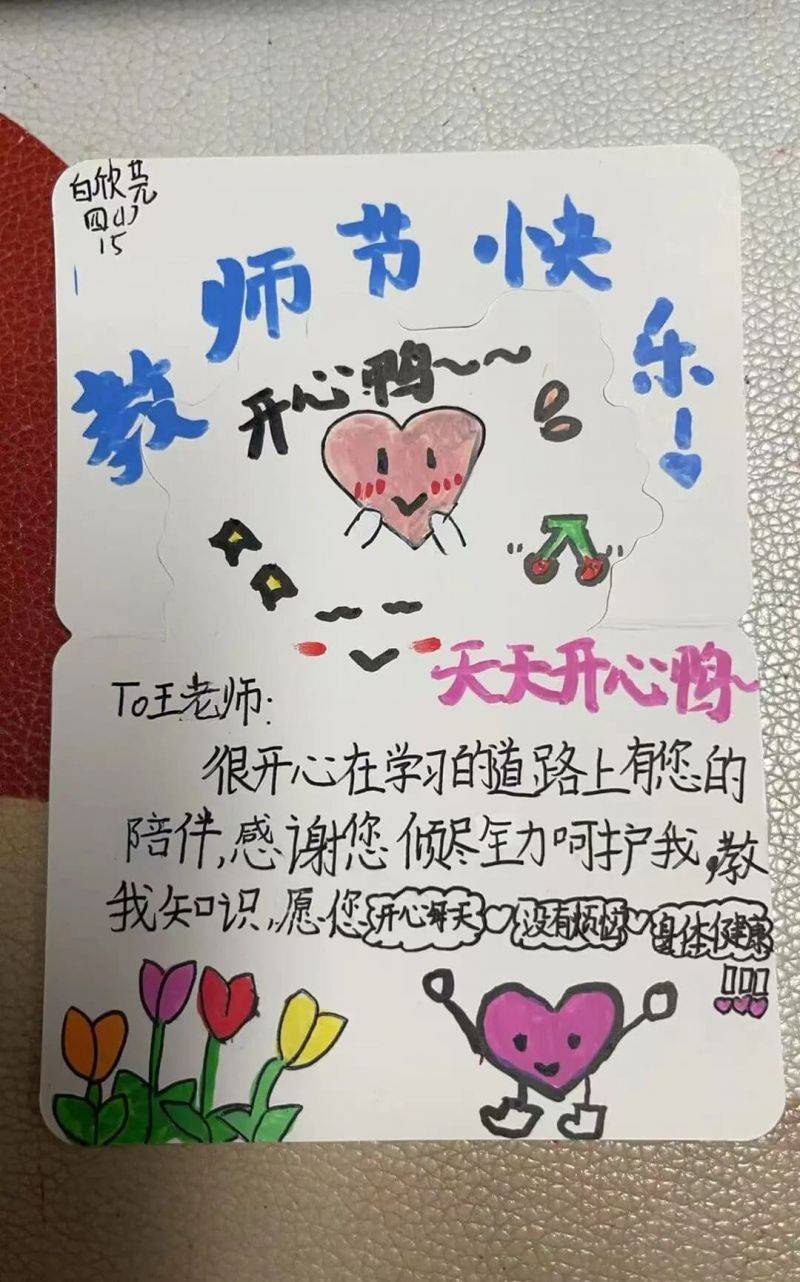 白欣芫
四(1)
15
教师节快乐!
开心鸭~~
天天开心鸭~
To王老师:
很开心在学习的道路上有您的
陪伴,感谢您倾尽全力呵护我,教
我知识,愿您开心每天♡没有烦恼♡身体健康
!!!